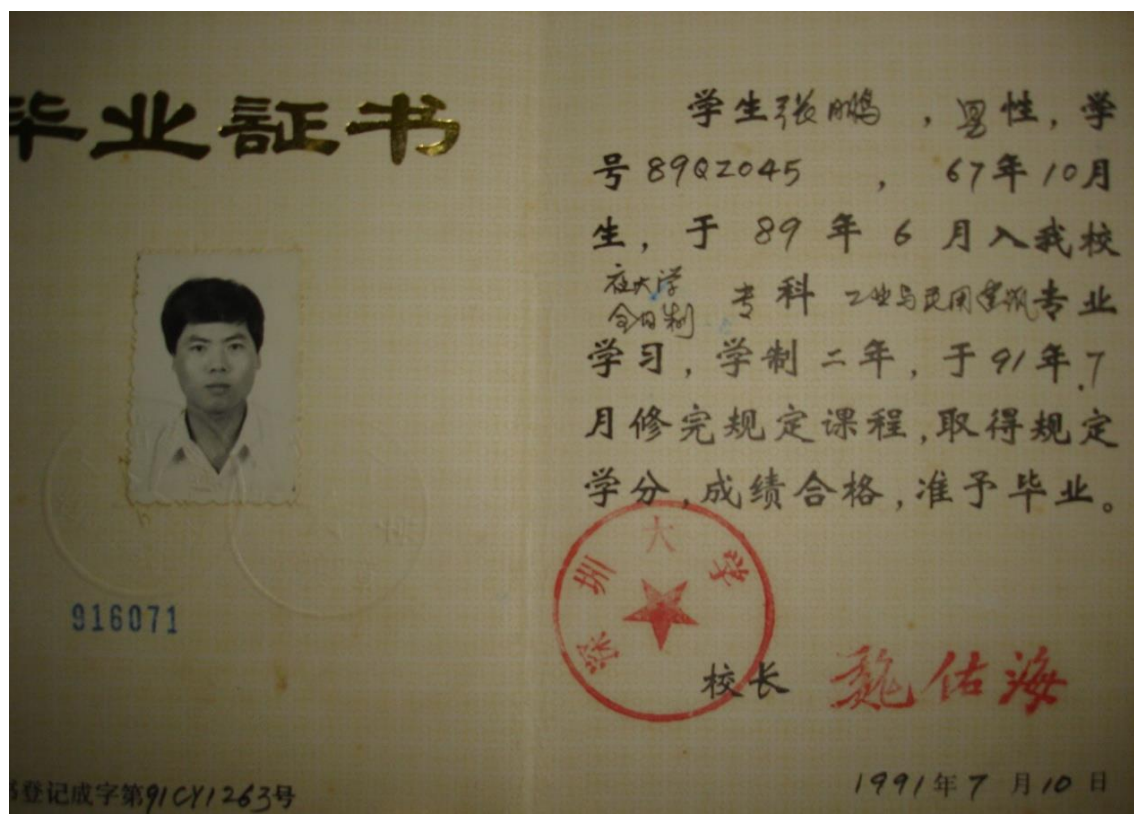 毕业証书
916071
登记成字第91CY1263号
学生张鹏，男性，学
号89QZ045，67年10月
生，于89年6月入我校
在大学
全日制 专科 工业与民用建筑专业
学习，学制二年，于91年7
月修完规定课程，取得规定
学分，成绩合格，准予毕业。
深圳大学
校长 魏佑海
1991年7月10日